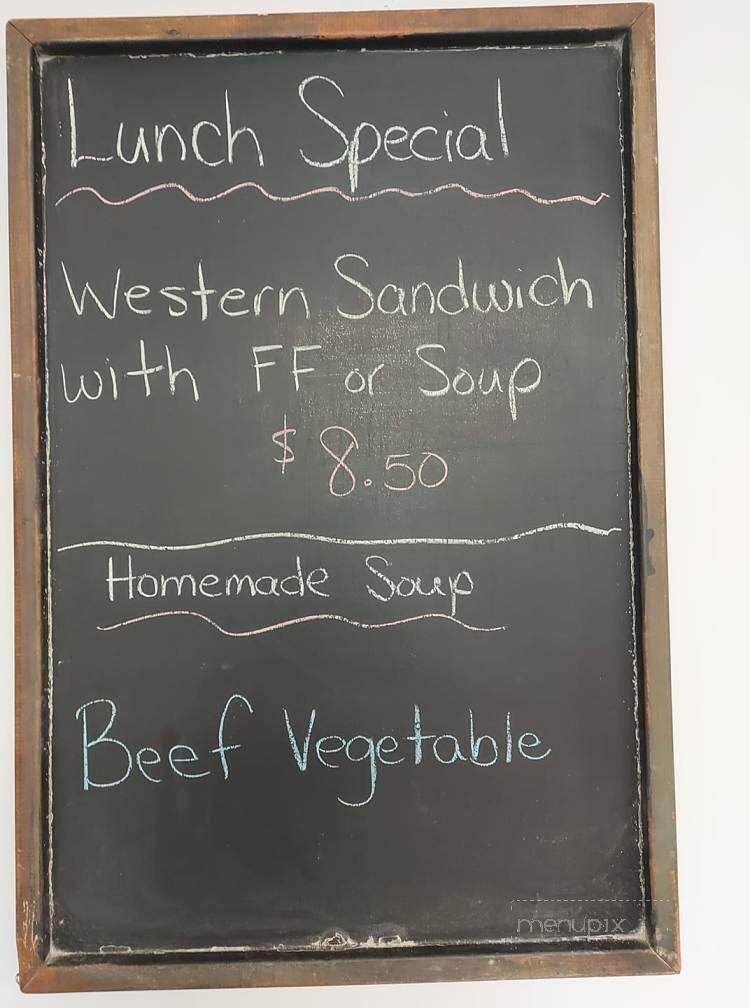 Lunch Special
Western Sandwich
with FF or Soup
$8.50
Homemade Soup
Beef Vegetable
menupix